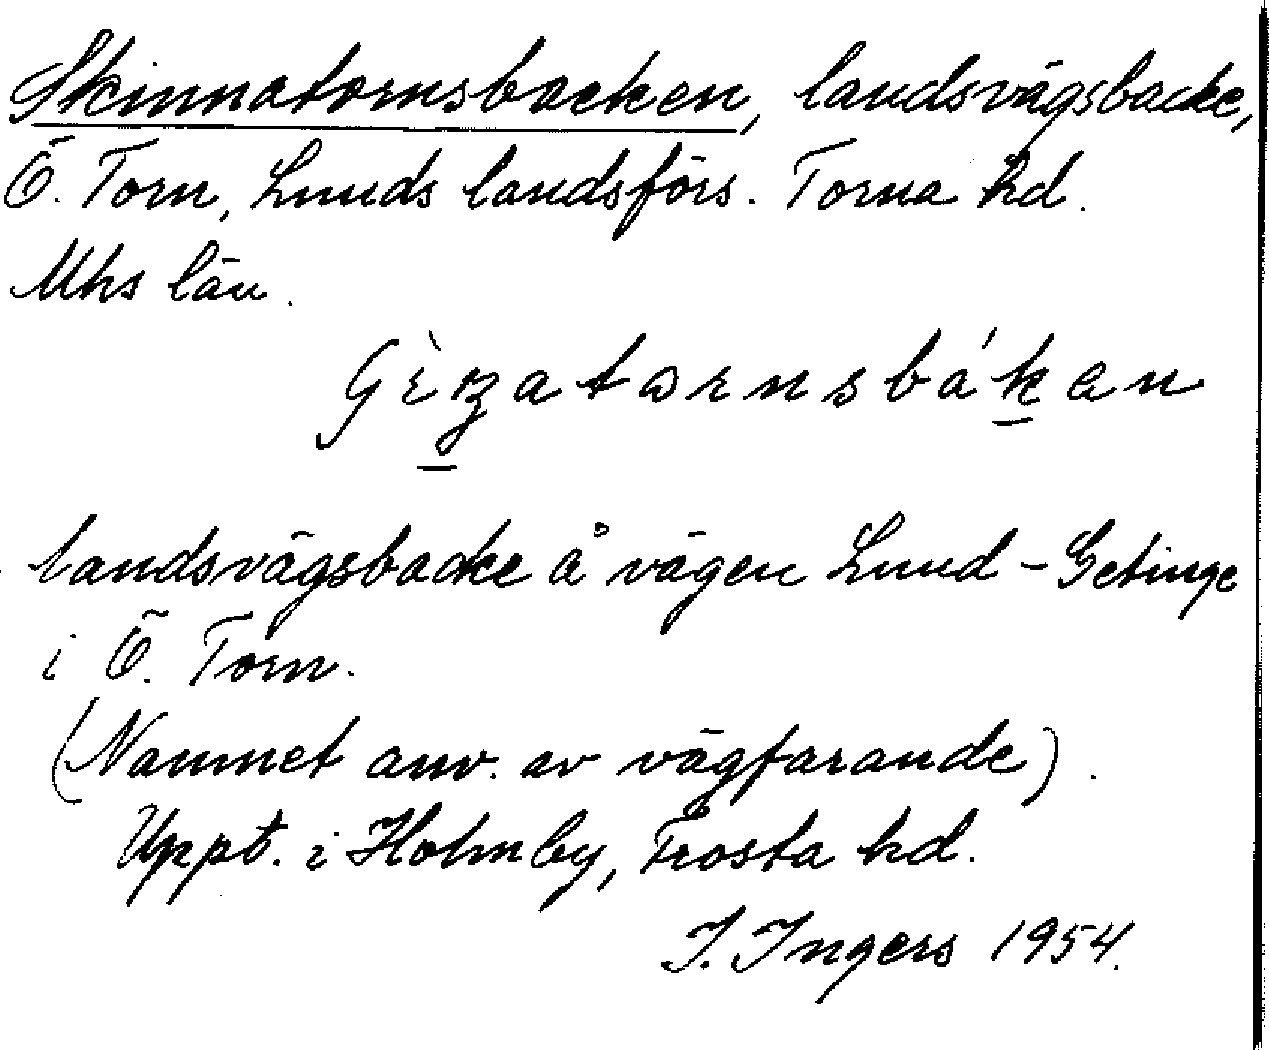 Skinnatornsbacken, landsvägsbacke,
Ö. Torn, Lunds landsförs. Torna hd.
Mhs län.
landsvägsbacke å vägen Lund - Getinge
i Ö. Torn.
(Namnet anv. av vägfarande).
Uppt. i Holmby, Frosta hd.
I. Ingers 1954.